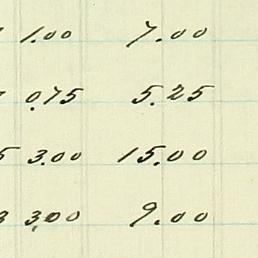 1.00 7.00
0.75 5.25
5 3.00 15.00
3 3.00 9.00